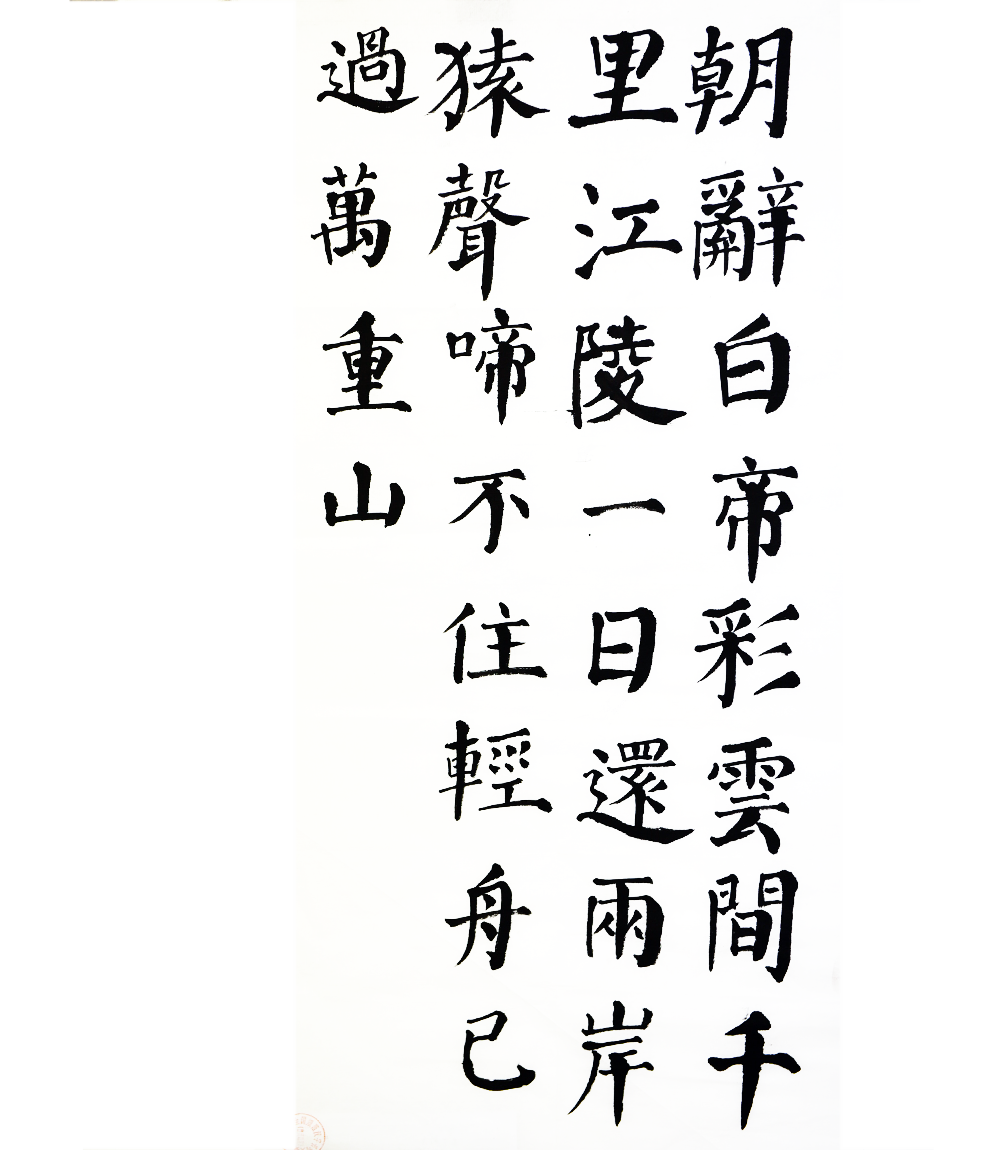 朝辭白帝彩雲間千
里江陵一日還兩岸
猿聲啼不住輕舟已
過萬重山